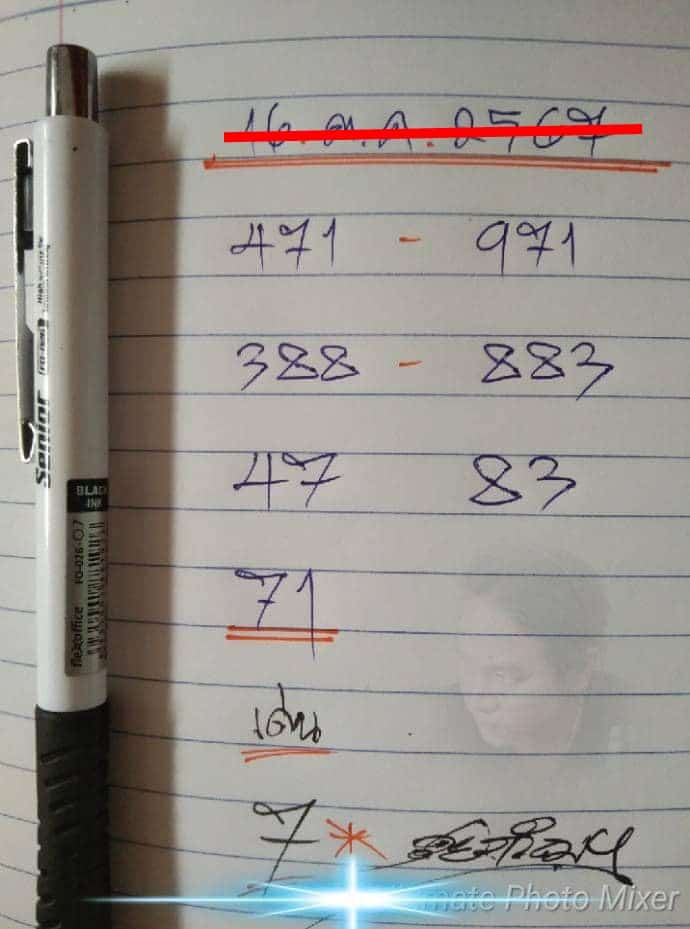 16. ต.ค. 2567
471 - 971
388 - 883
47 83
71
เด่น
7 *
Senior
BLACK INK
flexoffice FO-026 07
mate Photo Mixer